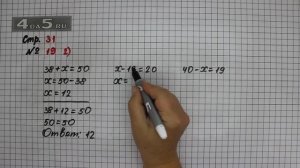 4GDS.RU
Стр. 31
№ 19 2)
38+x=50 x-18=20 40-x=19
x=50-38 x=
x=12
38+12=50
50=50
Ответ: 12